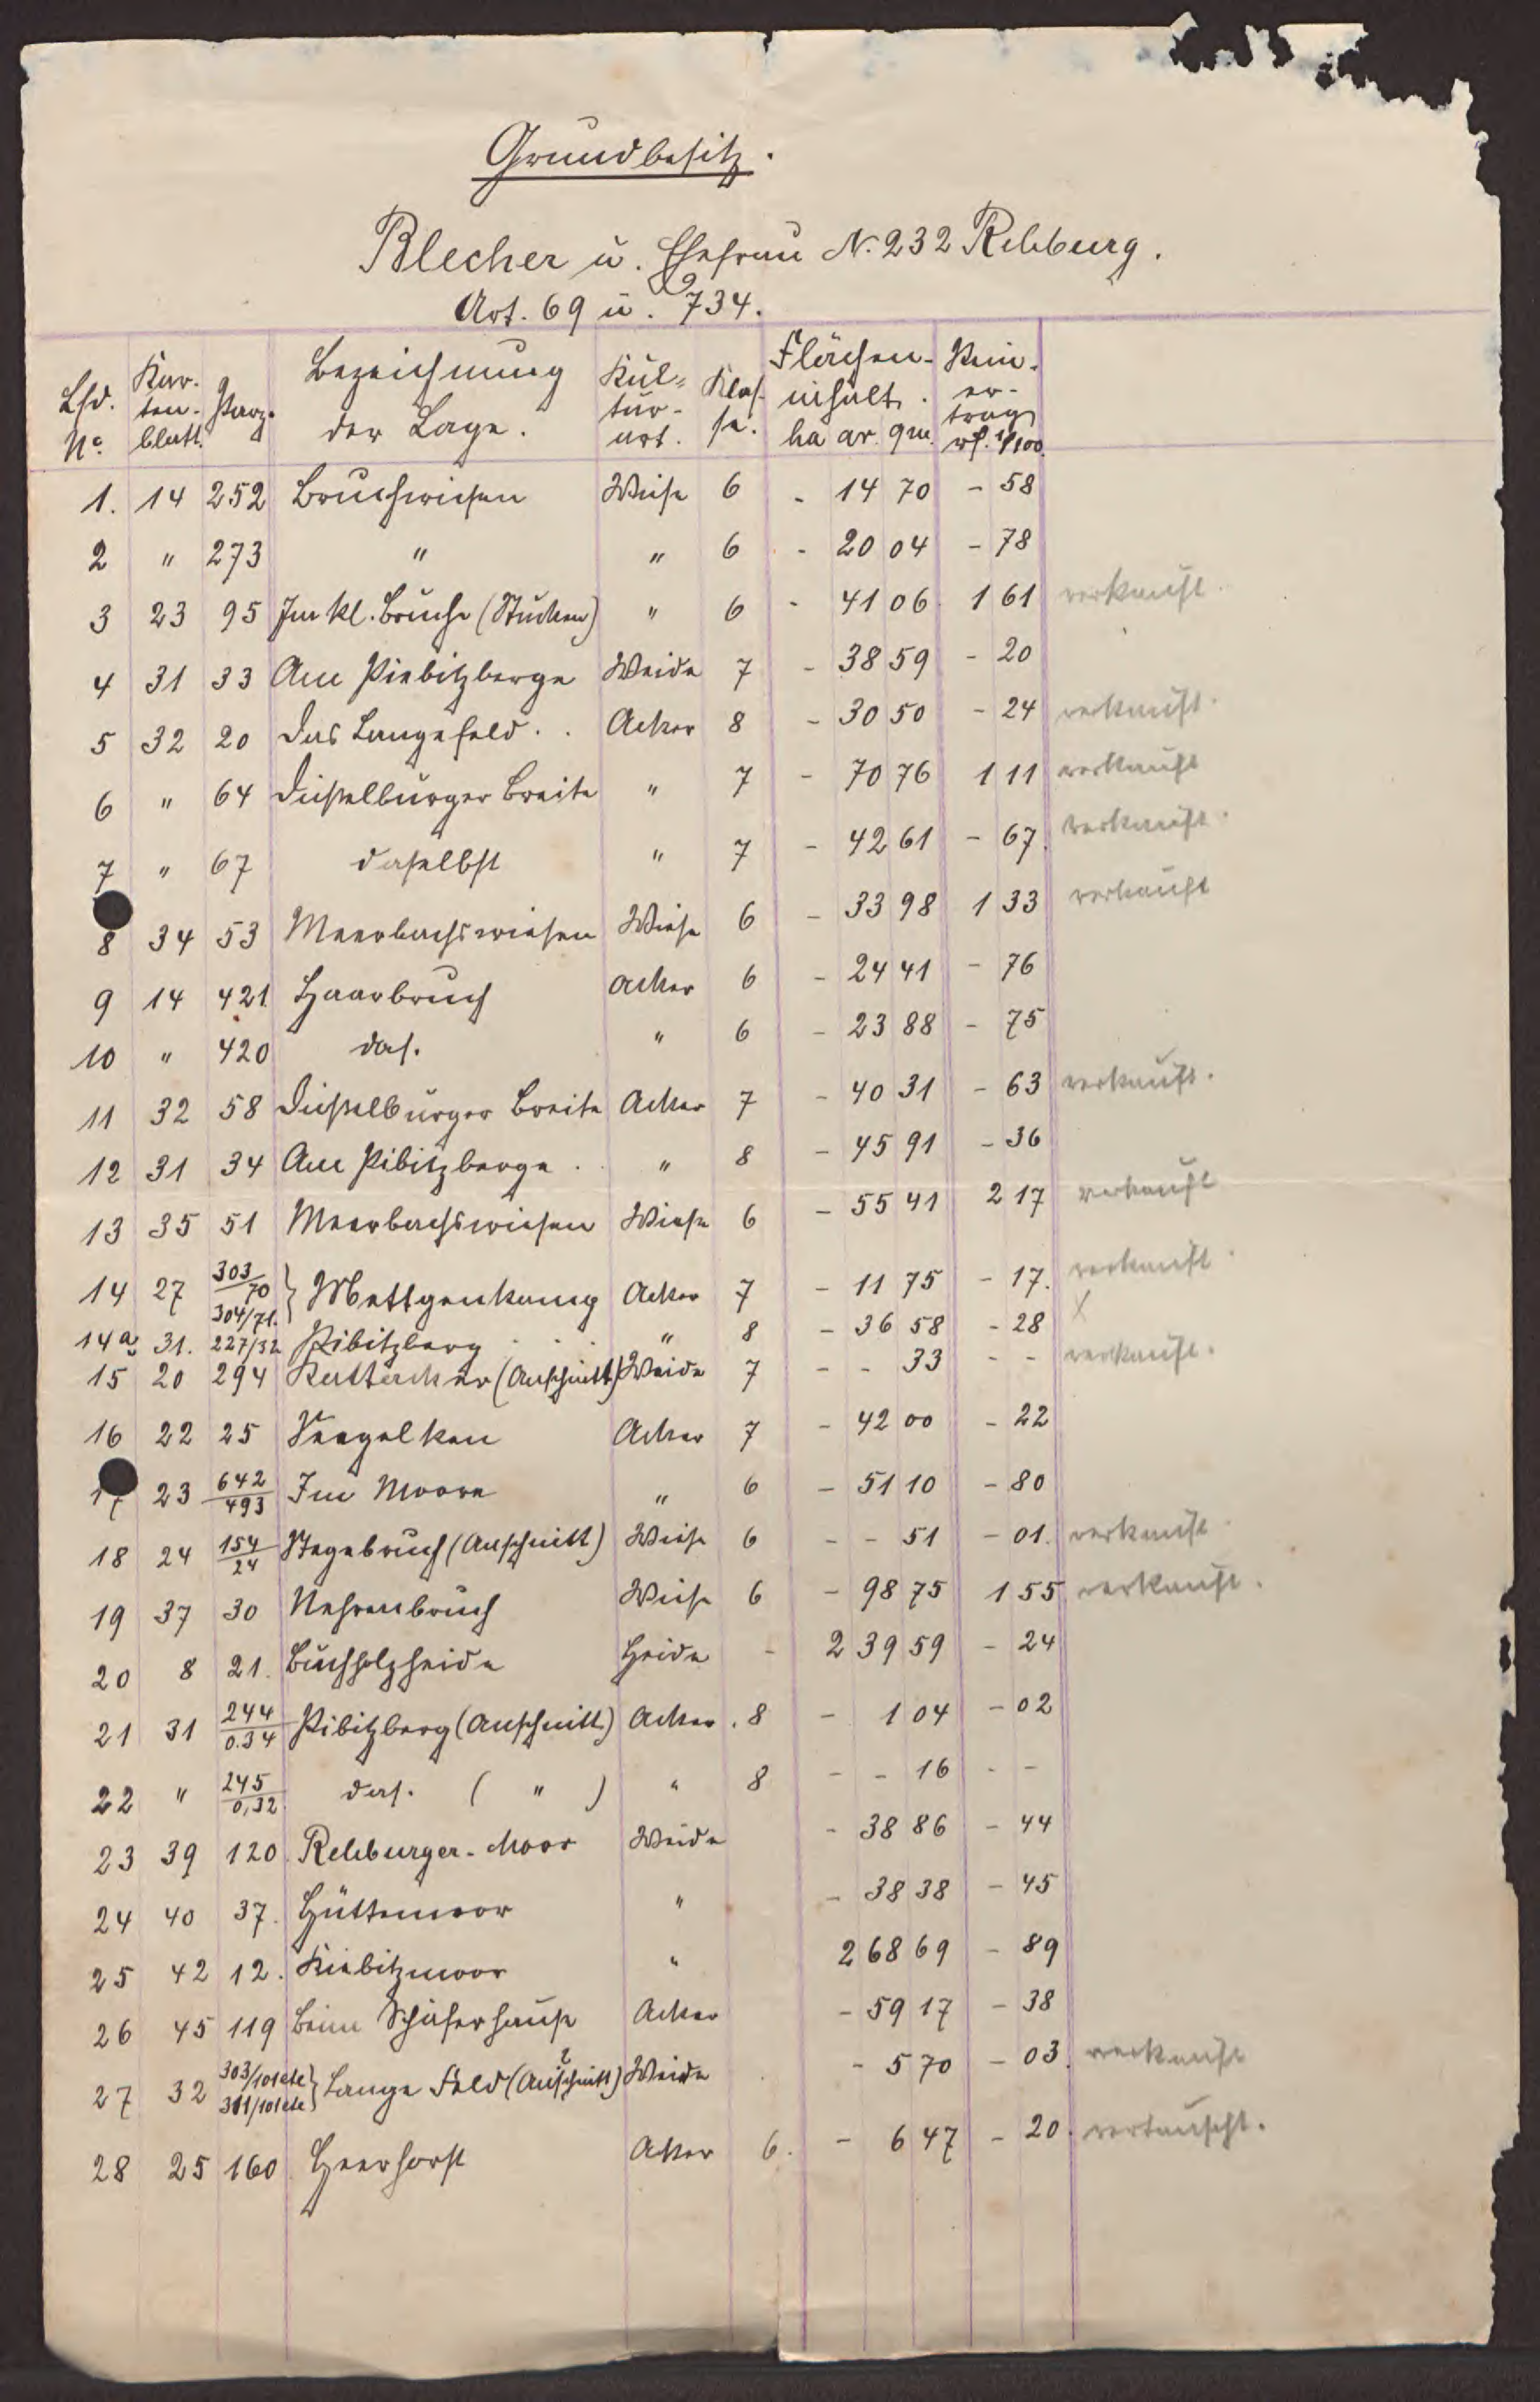 Grundbesitz.
Blecher u. Ehefrau N. 232 Rehburg.
Art. 69 u. 734.
Lfd. No. Kartenblatt. Parz. Bezeichnung der Lage. Kulturart. Klasse. Flächeninhalt. ha ar. qm. Reinertrag rf. 1/100.
1. 14 252 Bruchwiesen Wiese 6 - 14 70 - 58
2 " 273 " " 6 - 20 04 - 78
3 23 95 Im kl. Bruche (Stücken) " 6 - 41 06 1 61 verkauft.
4 31 33 Am Kiebitzberge Weide 7 - 38 59 - 20
5 32 20 Das Langefeld . . Acker 8 - 30 50 - 24 verkauft.
6 " 64 Düsselburger Breite " 7 - 70 76 1 11 verkauft
7 " 67 daselbst " 7 - 42 61 - 67. verkauft.
8 34 53 Meerbachswiesen Wiese 6 - 33 98 1 33 verkauft
9 14 421 Haarbruch Acker 6 - 24 41 - 76
10 " 420 das. " 6 - 23 88 - 75
11 32 58 Düsselburger Breite Acker 7 - 40 31 - 63 verkauft.
12 31 34 Am Kibitzberge . . " 8 - 45 91 - 36
13 35 51 Meerbachswiesen Wiese 6 - 55 41 2 17 verkauft
14 27 303/70 304/71. } Mattgenkamp Acker 7 - 11 75 - 17. verkauft.
14a 31. 227/32 Kibitzberg . . . " 8 - 36 58 - 28 X
15 20 294 (Anschnitt) Weide 7 - - 33 - - verkauft.
16 22 25 Acker 7 - 42 00 - 22
17 23 642/493 Im Moore " 6 - 51 10 - 80
18 24 154/24 (Anschnitt) Wiese 6 - - 51 - 01. verkauft.
19 37 30 Nehrenbruch Wiese 6 - 98 75 1 55 verkauft.
20 8 21. Buchholzheide Heide - 2 39 59 - 24
21 31 244/0.34 Kibitzberg (Anschnitt) Acker . 8 - 1 04 - 02
22 " 245/0,32 das. ( " ) " 8 - - 16 - -
23 39 120. Rehburger-Moor Weide - 38 86 - 44
24 40 37. Hüttenmoor " - 38 38 - 45
25 42 12. Kiebitzmoor " 2 68 69 - 89
26 45 119 Beim Schäferhause Acker - 59 17 - 38
27 32 303/101 etc 311/101 etc } Lange Feld (Anschnitt) Weide - 5 70 - 03. verkauft
28 25 160 Heerhorst Acker 6. - 6 47 - 20. vertauscht.